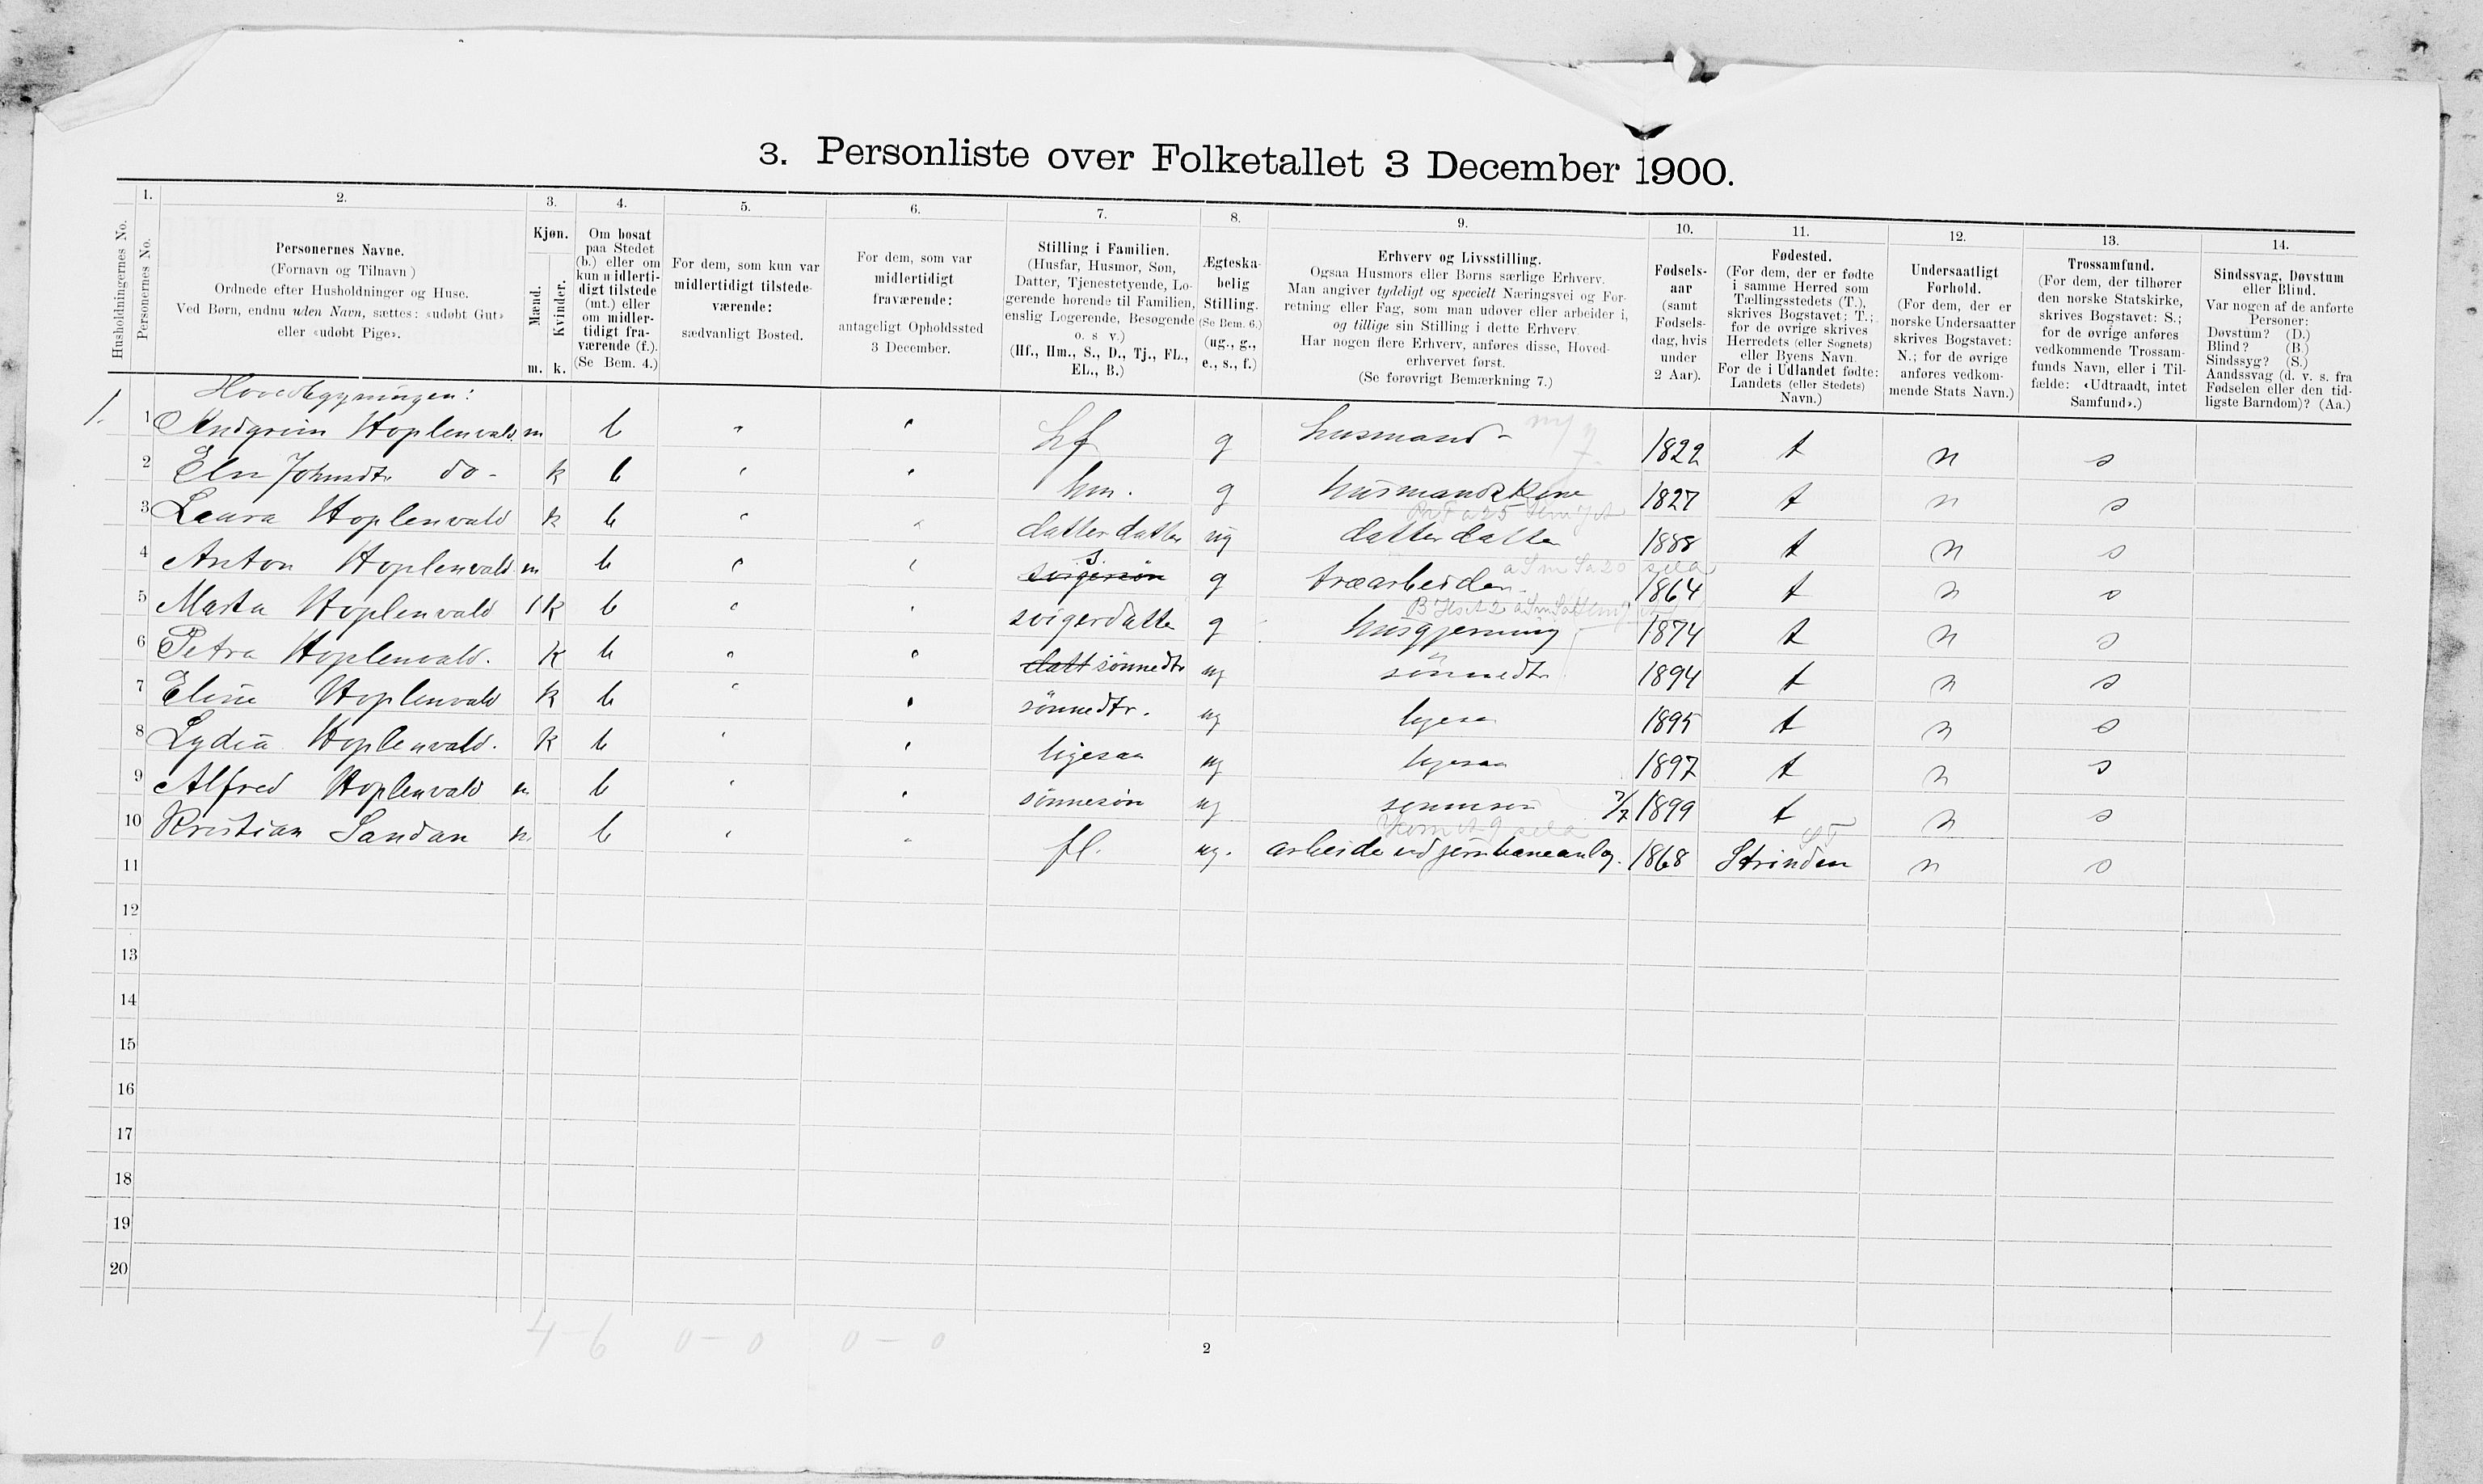 3. Personliste over Folketallet 3 December 1900.
1. 2. 3. 4. 5. 6. 7. 8. 9. 10. 11. 12. 13. 14.
Husholdningernes No.
Personernes No.
Personernes Navne.
(Fornavn og Tilnavn)
Ordnede efter Husholdninger og Huse.
Ved Børn, endnu uden Navn, sættes: «udøbt Gut»
eller «udøbt Pige».
Kjøn.
Mænd.
Kvinder.
m. k.
Om bosat
paa Stedet
(b.) eller om
kun midlerti-
digt tilstede
(mt.) eller
om midler-
tidigt fra-
værende (f.).
(Se Bem. 4.)
For dem, som kun var
midlertidigt tilstede-
værende:
sædvanligt Bosted.
For dem, som var
midlertidigt
fraværende:
antageligt Opholdssted
3 December.
Stilling i Familien.
(Husfar, Husmor, Søn,
Datter, Tjenestetyende, Lo-
gerende hørende til Familien,
enslig Logerende, Besøgende
o. s v.)
(Hf., Hm., S., D., Tj., FL.,
EL., B.)
Ægteska-
belig
Stilling.
(Se Bem. 6.)
(ug., g.,
e., s., f.)
Erhverv og Livsstilling.
Ogsaa Husmors eller Børns særlige Erhverv.
Man angiver tydeligt og specielt Næringsvei og For-
retning eller Fag, som man udøver eller arbeider i,
og tillige sin Stilling i dette Erhverv.
Har nogen flere Erhverv, anføres disse, Hoved-
erhvervet først.
(Se forøvrigt Bemærkning 7.)
Fødsels-
aar
(samt
Fødsels-
dag, hvis
under
2 Aar).
Fødested.
(For dem, der er fødte
i samme Herred som
Tællingsstedets (T.),
skrives Bogstavet: T.;
for de øvrige skrives
Herredets (eller Sognets)
eller Byens Navn.
For de i Udlandet fødte:
Landets (eller Stedets)
Navn.)
Undersaatligt
Forhold.
(For dem, der er
norske Undersaatter
skrives Bogstavet:
N.; for de øvrige
anføres vedkom-
mende Stats Navn.)
Trossamfund.
(For dem, der tilhører
den norske Statskirke,
skrives Bogstavet: S.;
for de øvrige anføres
vedkommende Trossam-
funds Navn, eller i Til-
fælde: «Udtraadt, intet
Samfund».)
Sindssvag, Døvstum
eller Blind.
Var nogen af de anførte
Personer:
Døvstum? (D.)
Blind? (B.)
Sindssyg? (S.)
Aandssvag (d. v. s. fra
Fødselen eller den tid-
ligste Barndom)? (Aa.)
Hovedbygningen:
1. 1 Andgrim Hoplenvald. m b " " hf g husmand- 1822 t n s
2 Eln Johnsdtr do- k b " " hm. g husmandskone 1827 t n s
3 Laura Hoplenvald k b " " datterdatter ug datterdatter 1888 t n s
4 Anton Hoplenvald m b " " svigersøn s g træarbeider 1864 t n s
5 Marta Hoplenvald 1 k b " " svigerdatter g husgjerning 1874 t n s
6 Petra Hoplenvald. k b " " datt sønnedtr ug sønnedtr 1894 t n s
7 Eline Hoplenvald k b " " sønnedtr. ug ligesaa 1895 t n s
8 Lydia Hoplenvald. k b " " ligesaa ug ligesaa 1897 t n s
9 Alfred Hoplenvald m b " " sønnesøn ug sønnesøn 7/7 1899 t n s
10 Kristian Sandan m b " " fl. ug. arbeide ved jernbaneanlæg. 1868 Strinden n s
11
12
13
14
15
16
17
18
19
20
4 - 6 0 - 0 0 - 0
2